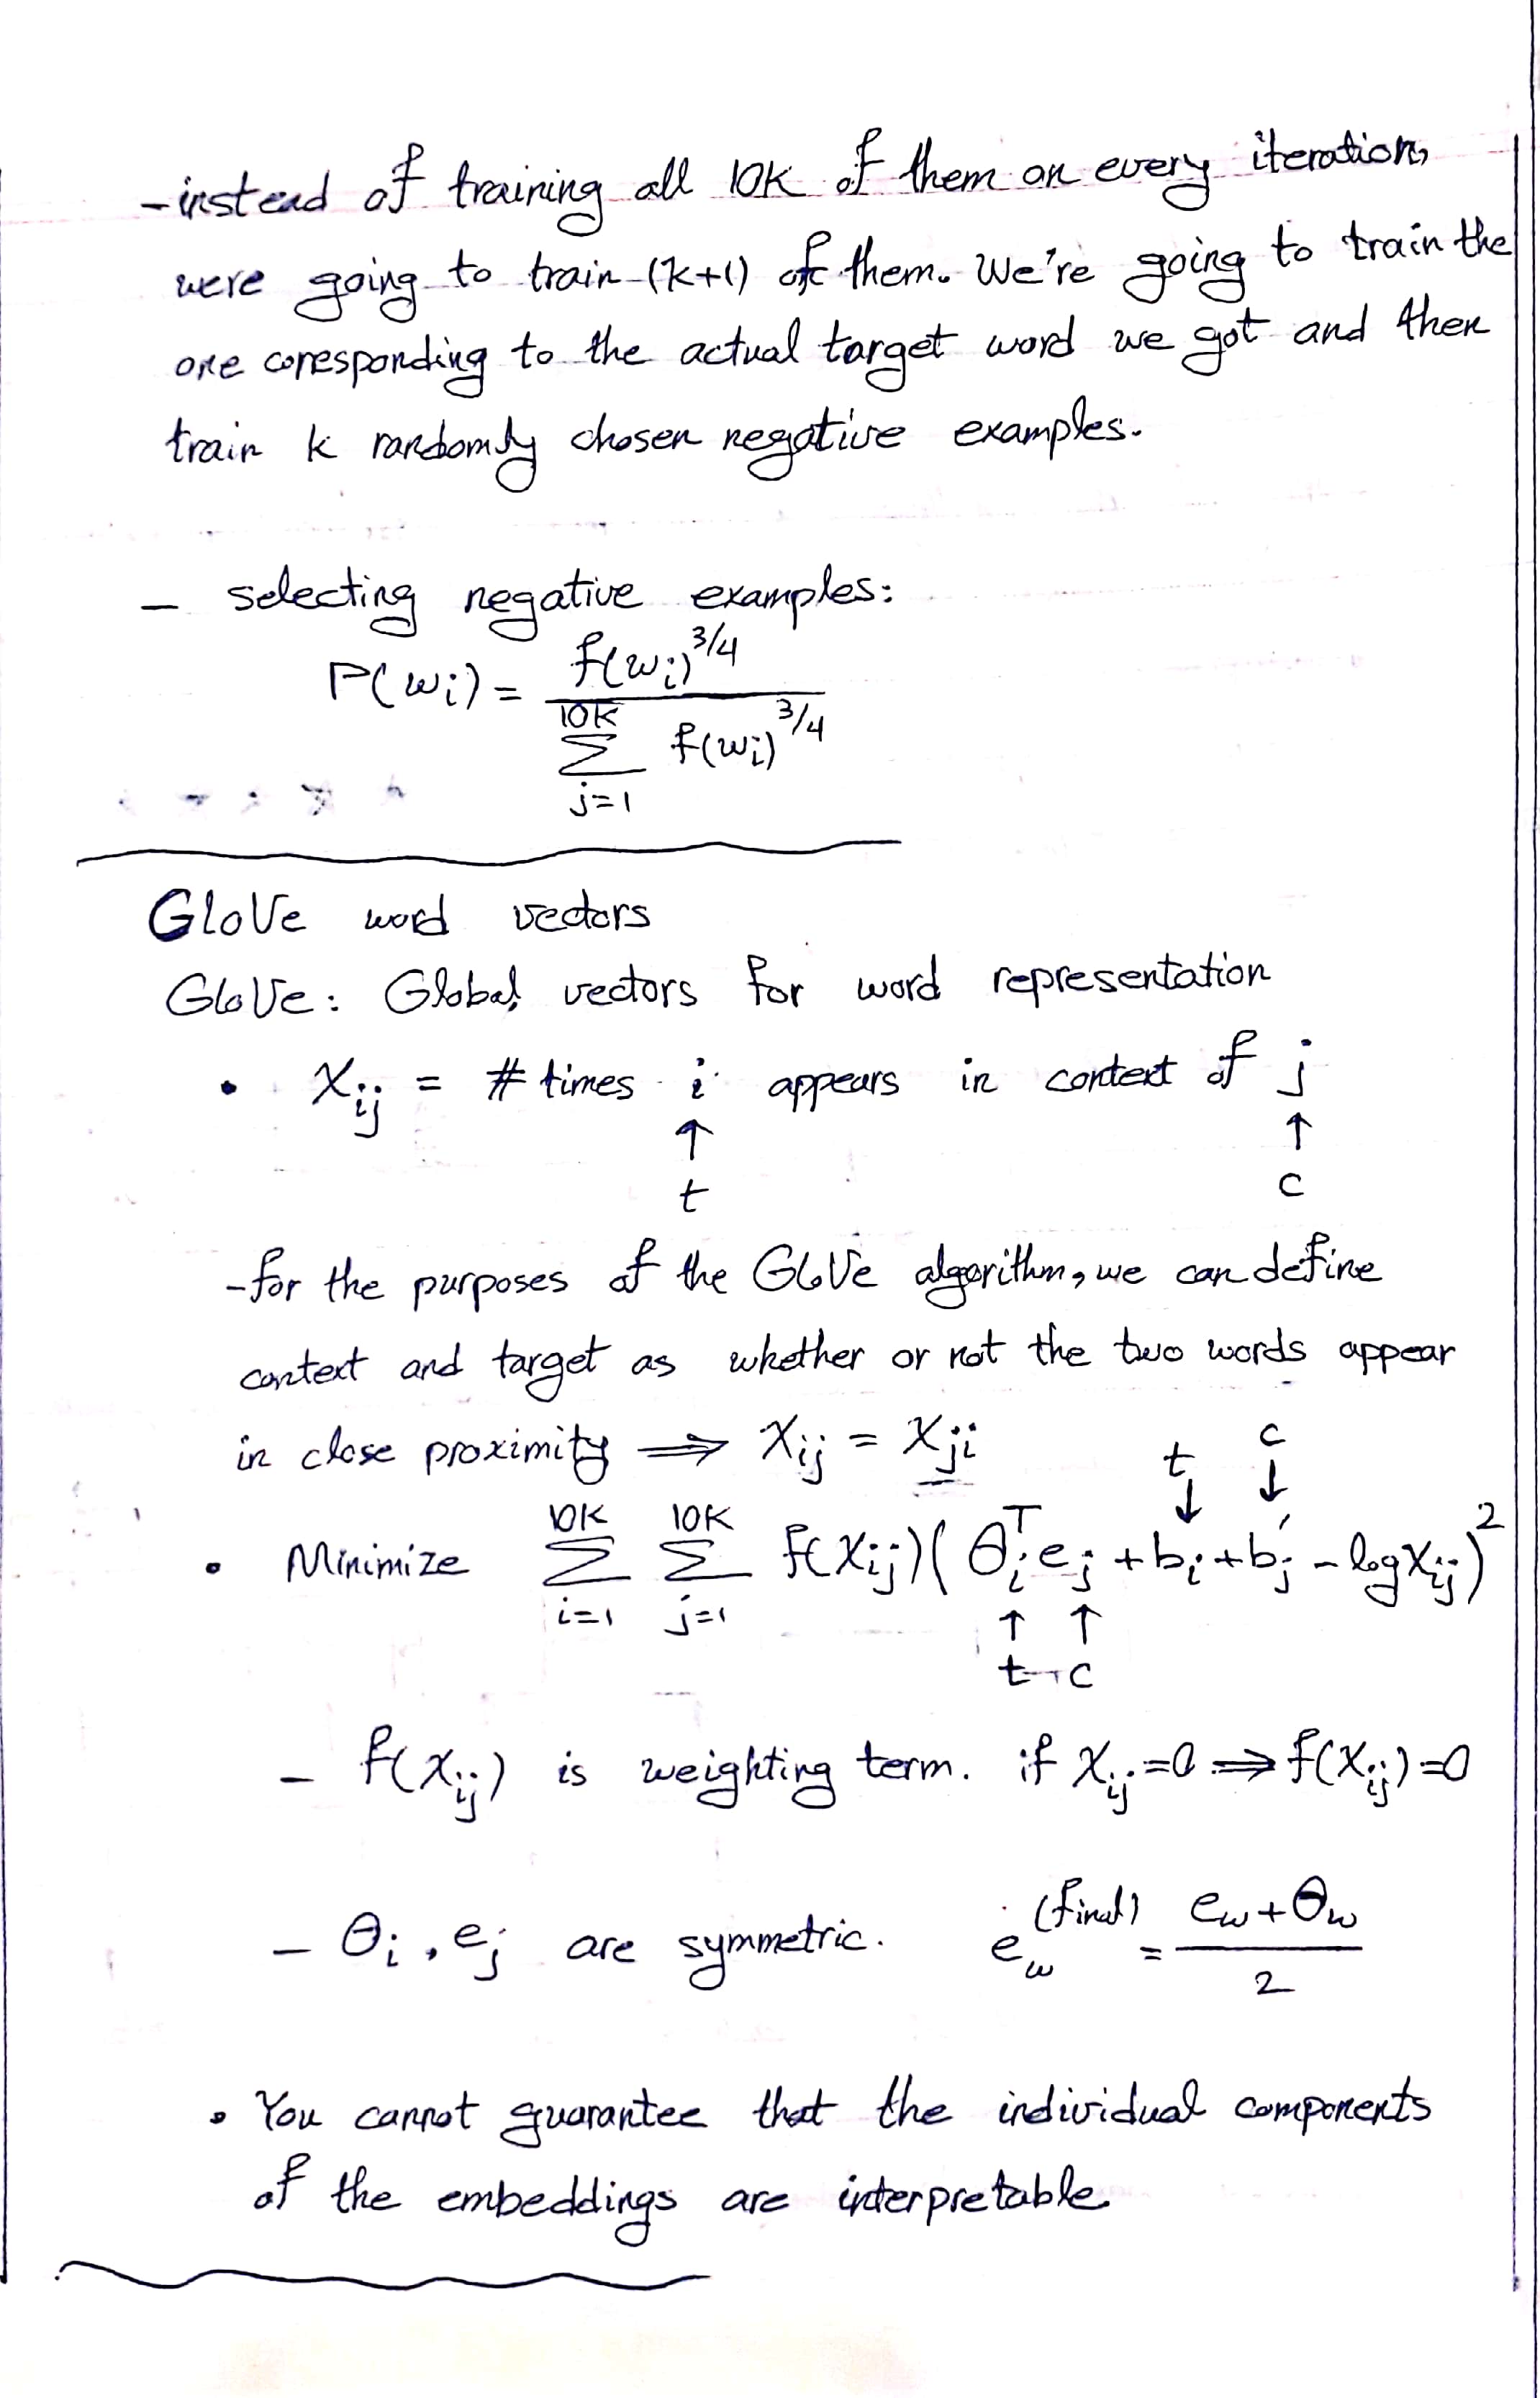 - instead of training all 10K of them on every iteration,
were going to train (k+1) of them. We're going to train the
one corresponding to the actual target word we got and then
train k randomly chosen negative examples.
- selecting negative examples:
P(wi) = f(wi)^3/4 / Σ_{j=1}^{10K} f(wi)^3/4
GloVe word vectors
GloVe: Global vectors for word representation
• Xij = # times i appears in context of j
↑ ↑
t c
- for the purposes of the GloVe algorithm, we can define
context and target as whether or not the two words appear
in close proximity ⟹ Xij = Xji
t c
↓ ↓
• Minimize Σ_{i=1}^{10K} Σ_{j=1}^{10K} f(Xij)(θi^T ej + bi + b'j - log Xij)^2
↑ ↑
t c
- f(Xij) is weighting term. if Xij=0 ⟹ f(Xij)=0
- θi, ej are symmetric. e_w^(final) = (e_w + θ_w) / 2
• You cannot guarantee that the individual components
of the embeddings are interpretable